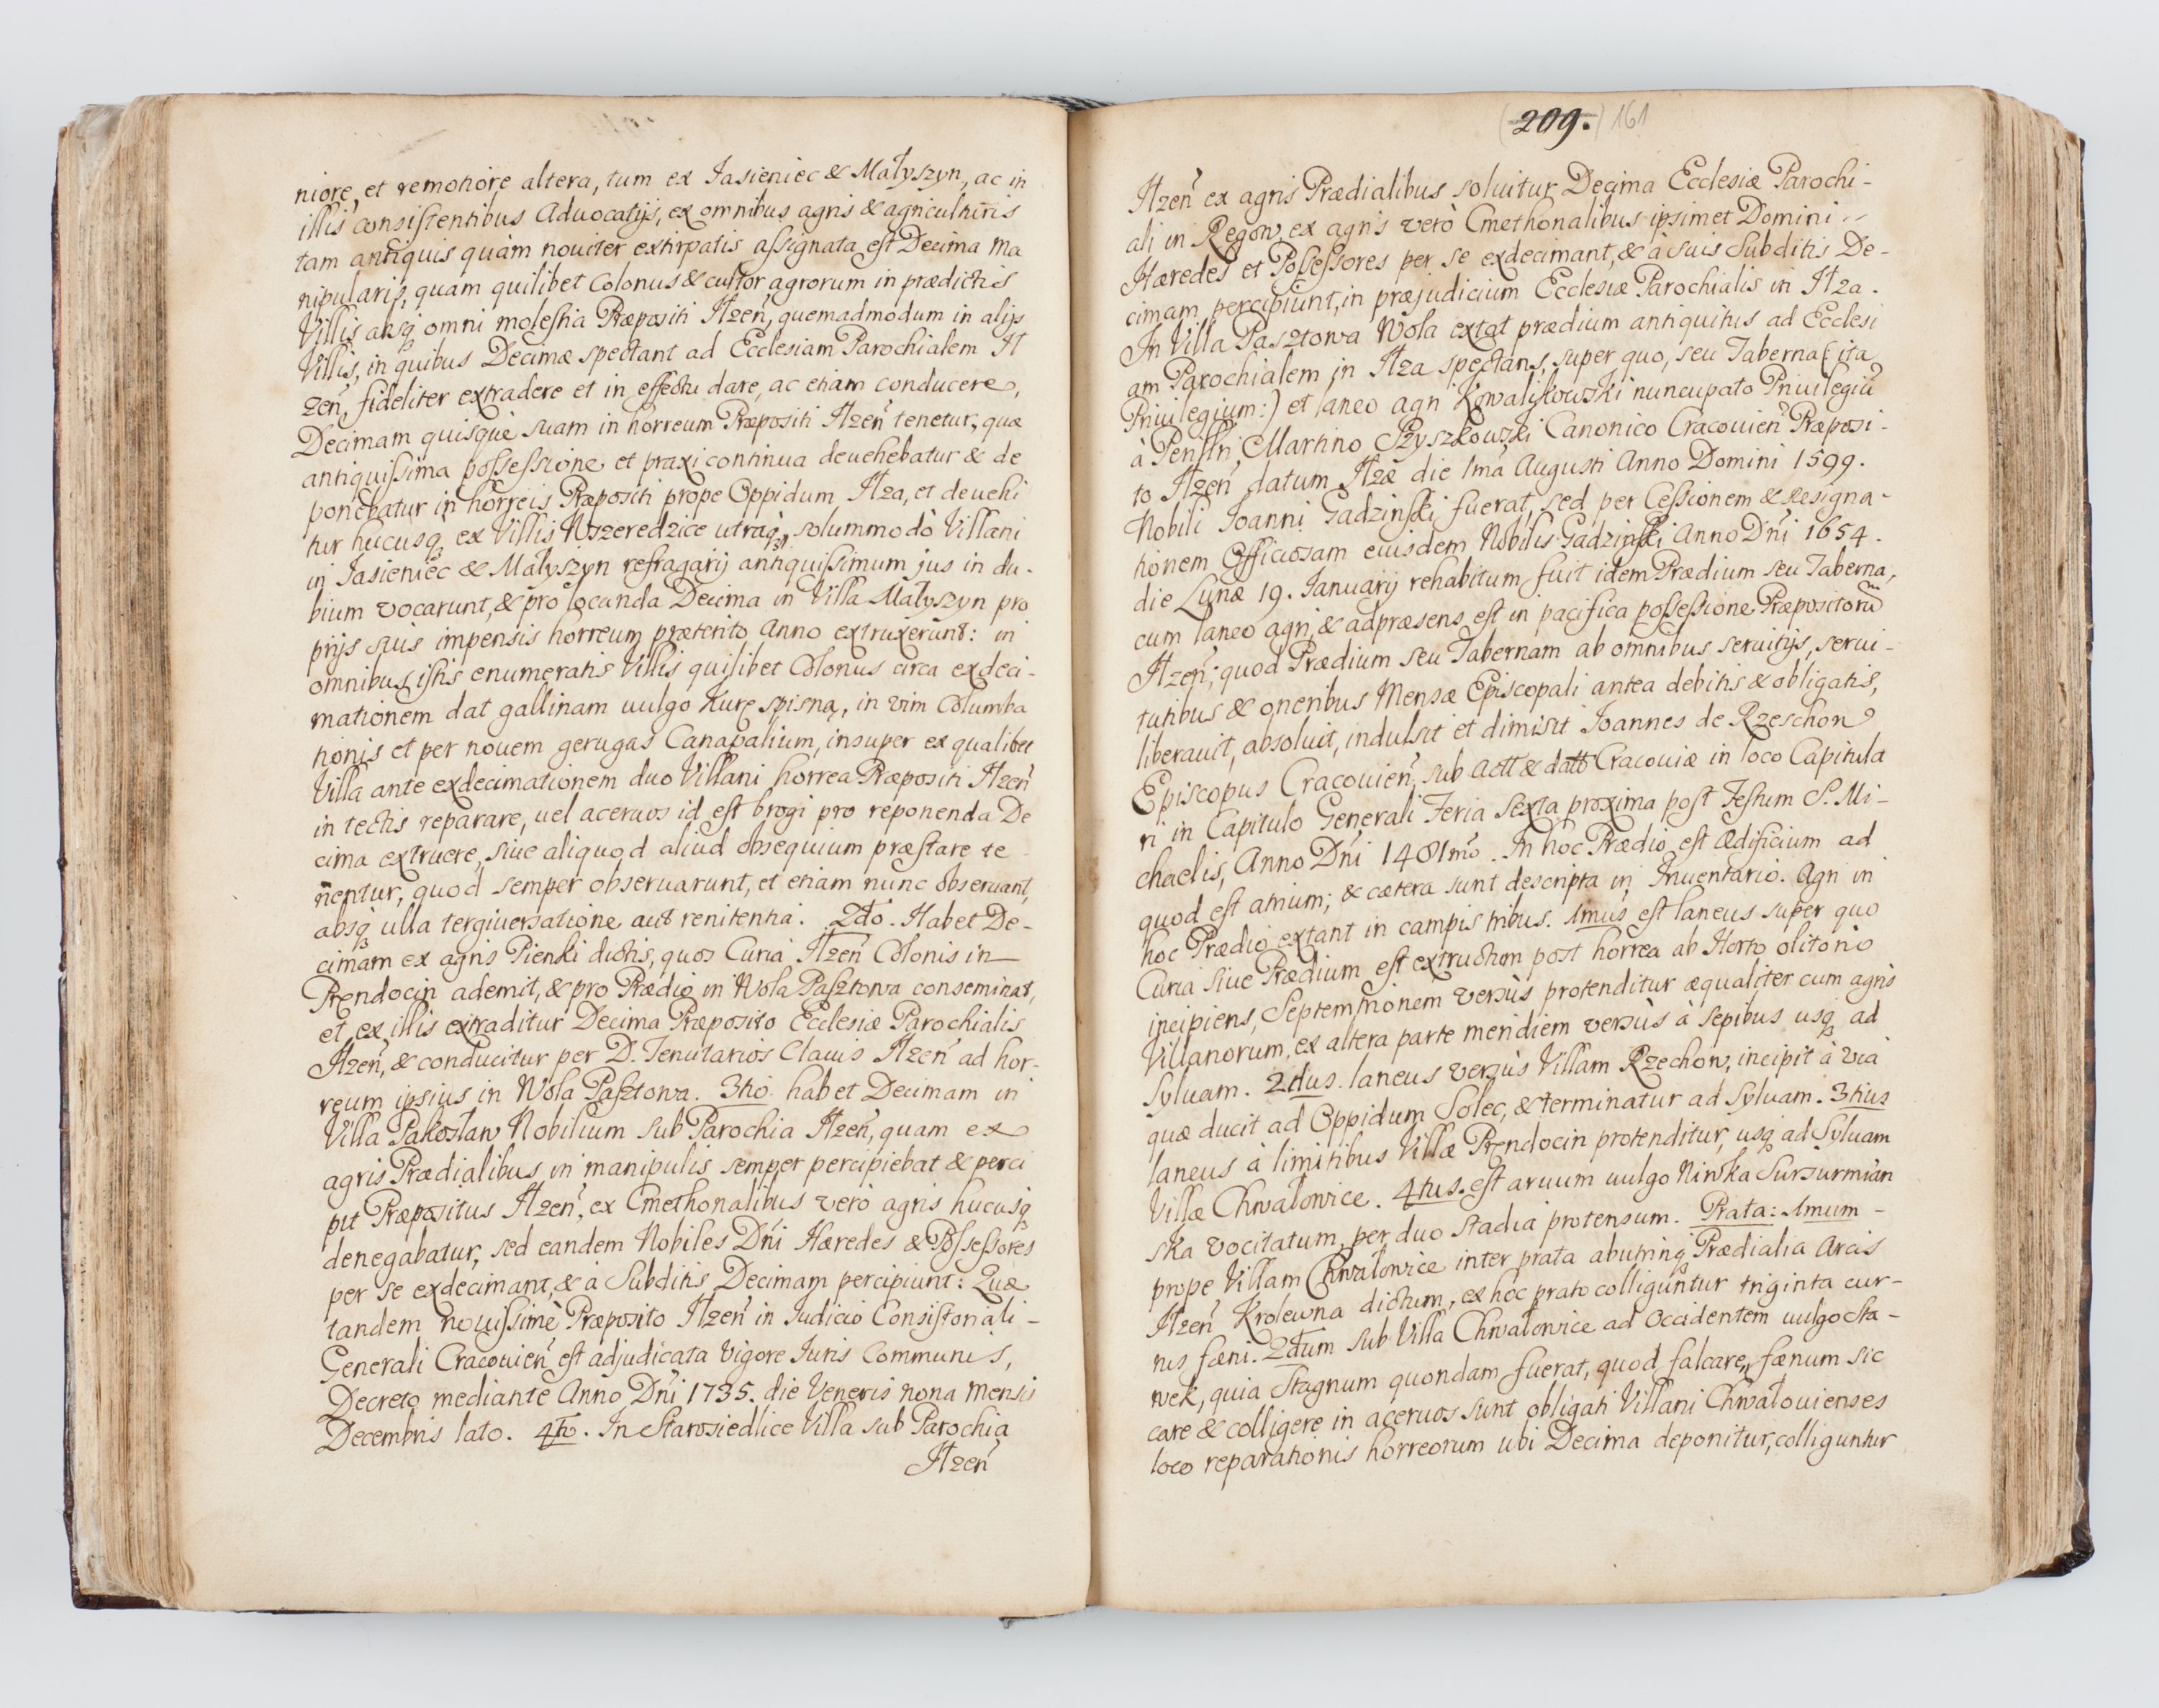 niore, et remotiore altera, tum ex Jasieniec & Małyszyn, ac in
illis consistentibus Aduocatijs, ex omnibus agris & agriculturis
tam antiquis quàm nouiter extirpatis assignata est Decima Ma
nipularis, quam quilibet Colonus & cultor agrorum in prædictis
Villis absq omni molestia Præpositi Jłzeń, quemadmodum in alijs
Villis, in quibus Decimæ spectant ad Ecclesiam Parochialem Jł
zeń, fideliter extradere et in effectu dare, ac etiam conducere,
Decimam quisque suam in horreum Præpositi Jłzeń tenetur, quæ
antiquissima possessione et praxi continua deuehebatur & de
ponebatur in horreis Præpositi prope Oppidum Jłza, et deuehi
tur hucusq ex Villis Wszeredzice utraq, solummodò Villani
in Jasieniec & Małyszyn refragarij antiquissimum jus in du-
bium vocarunt, & pro locanda Decima in Villa Małyszyn pro
prijs suis impensis horreum præterito Anno extruxerunt: in
omnibus istis enumeratis Villis quilibet Colonus circa exdeci-
mationem dat gallinam uulgo Kurę spisną, in vim Columba
tionis et per nouem gerugas Canapalium, insuper ex qualibet
Villa ante exdecimationem duo Villani horrea Præpositi Jłzeń
in tectis reparare, uel aceruos id est brogi pro reponenda De
cima extruere, siue aliquod aliud obsequium præstare te
nentur, quod semper obseruarunt, et etiam nunc obseruant,
absq ulla tergiuersatione aut renitentia. 2do. Habet De-
cimam ex agris Pieńki dictis, quos Curia Jłzeń Colonis in
Prendocin ademit, & pro Prædio in Wola Pasztowa conseminat,
et ex illis extraditur Decima Præposito Ecclesiæ Parochialis
Jłzeń, & conducitur per D. Tenutarios Clauis Jłzeń ad hor-
reum ipsius in Wola Pasztowa. 3tio. habet Decimam in
Villa Pakosław Nobilium sub Parochia Jłzeń, quam ex
agris Prædialibus in manipulis semper percipiebat & perci
pit Præpositus Jłzeń, ex Cmethonalibus verò agris hucusq
denegabatur, sed eandem Nobiles Dńi Hæredes & Possessores
per se exdecimant, & à Subditis Decimam percipiunt: Quæ
tandem nouissimè Præposito Jłzeń in Judicio Consistoriali -
Generali Cracouień est adjudicata Vigore Juris Communis,
Decreto mediante Anno Dńi 1735. die Veneris nona Mensis
Decembris lato. 4to. In Starosiedlice Villa sub Parochia
Jłzeń
(209.) 161
Jłzeń ex agris Prædialibus soluitur Decima Ecclesiæ Parochi-
ali in Regow, ex agris verò Cmethonalibus ipsimet Domini
Hæredes et Possessores per se exdecimant, & à suis Subditis De-
cimam percipiunt, in præjudicium Ecclesiæ Parochialis in Jłza.
In Villa Pasztowa Wola extat prædium antiquitus ad Ecclesi
am Parochialem in Jłza spectans, super quo, seu Taberna (: ita
Priuilegium :) et laneo agri Kowalijkowski nuncupato Priuilegiū
à Martino Szyszkowski Canonico Cracouień Præposi-
to Jłzeń datum Jłzæ die 1ma Augusti Anno Domini 1599.
Nobili Joanni Gadzinski fuerat, sed per Cessionem & Resigna-
tionem Officiosam eiusdem Nobilis Gadzinski Anno Dńi 1654.
die Lunæ 19. Januarij rehabitum fuit idem Prædium seu Taberna,
cum laneo agri, & adpræsens est in pacifica possessione Præpositorū
Jłzeń; quod Prædium seu Tabernam ab omnibus seruitijs, serui-
tutibus & oneribus Mensæ Episcopali antea debitis & obligatis,
liberauit, absoluit, indulsit et dimisit Joannes de Rzeschon
Episcopus Cracouień, sub Actt & datt Cracouiæ in loco Capitula
ri in Capitulo Generali Feria Sexta proxima post Festum S. Mi-
chaelis, Anno Dńi 1481mo. In hoc Prædio est Ædificium ad
quod est atrium; & cætera sunt descripta in Inuentario. Agri in
hoc Prædio extant in campis tribus. 1mus est laneus super quo
Curia siue Prædium est extructum post horrea ab Horto olitorio
incipiens, Septemtrionem versùs protenditur æqualiter cum agris
Villanorum, ex altera parte meridiem versùs à sepibus usq ad
Syluam. 2dus. laneus versùs Villam Rzechow, incipit à via
quæ ducit ad Oppidum Solec, & terminatur ad Syluam. 3tius
laneus à limitibus Villæ Prendocin protenditur, usq ad Syluam
Villæ Chwałowice. 4tus. est aruum uulgo Niwka Sursurmian
ska vocitatum, per duo stadia protensum. Prata: 1mum -
prope Villam Chwałowice inter prata abutinq Prædialia Arcis
Jłzeń Krolewna dictum, ex hoc prato colliguntur triginta cur-
rus fæni. 2dum sub Villa Chwałowice ad Occidentem uulgo Sta-
wek, quia Stagnum quondam fuerat, quod falcare, fænum sic
care & colligere in aceruos sunt obligati Villani Chwałouienses
loco reparationis horreorum ubi Decima deponitur, colliguntur